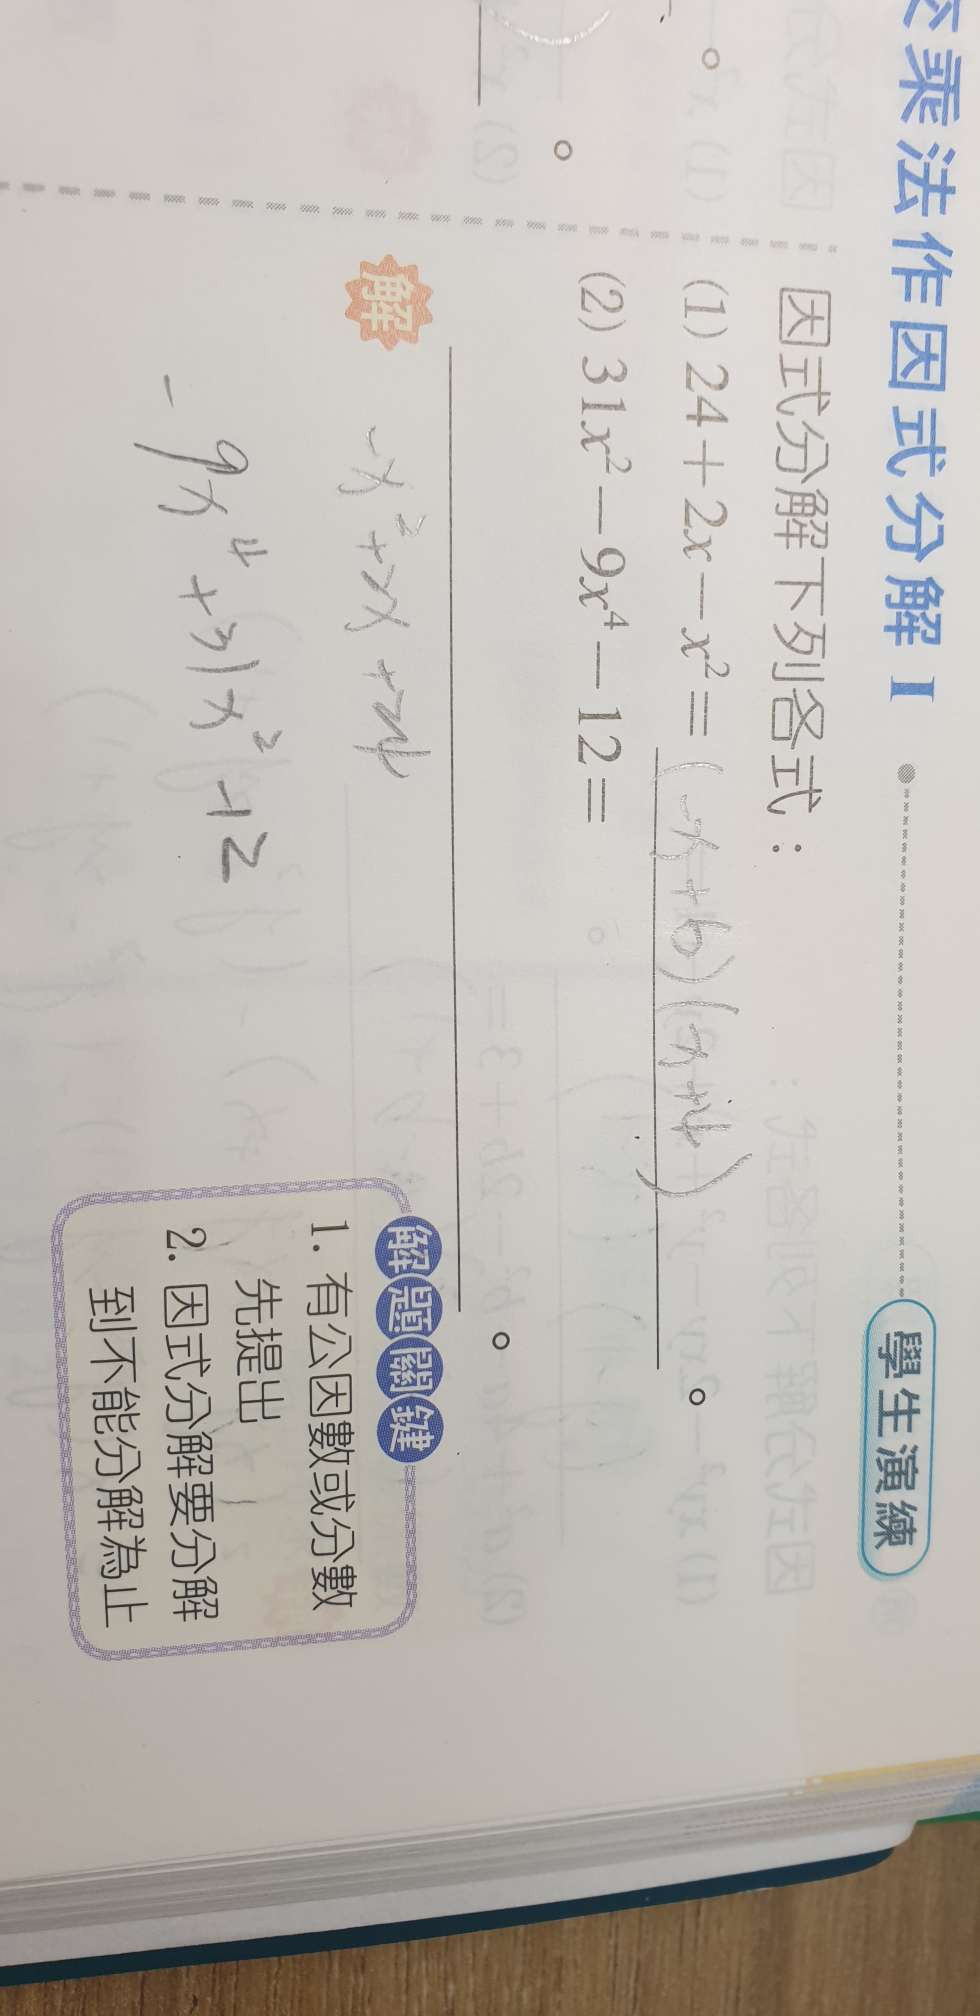 乘法作因式分解 I
學生演練
因式分解下列各式：
(1) 24+2x−x²= (−x+6)(x+4) 。
(2) 31x²−9x⁴−12=
。
解
−x²+2x+24
−9x⁴+31x²−12
解題關鍵
1. 有公因數或分數
先提出
2. 因式分解要分解
到不能分解為止